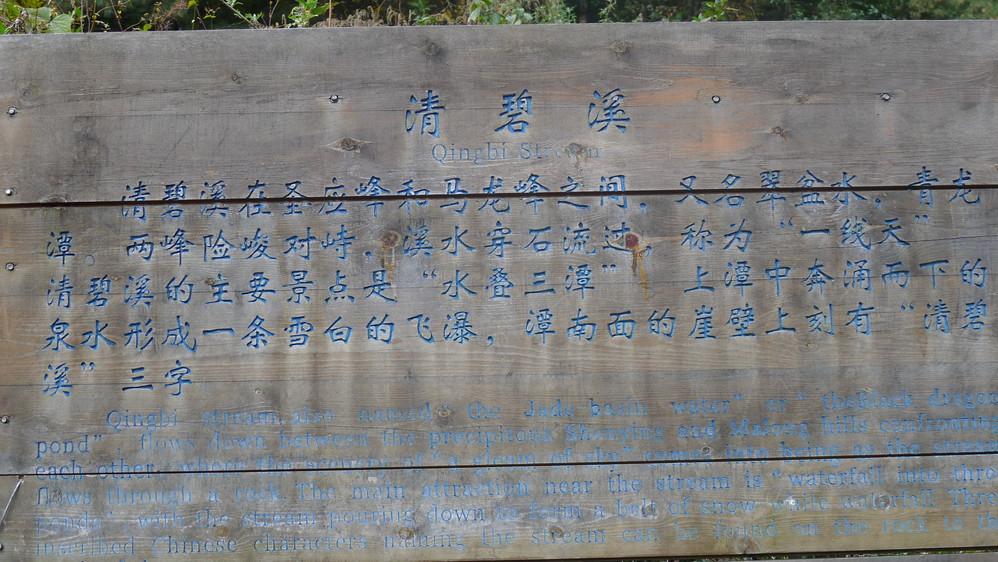 清碧溪
Qingbi Stream
清碧溪在圣应峰和马龙峰之间，又名翠盆水，青龙
潭。两峰险峻对峙，溪水穿石流过，称为“一线天”
清碧溪的主要景点是“水叠三潭” 上潭中奔涌而下的
泉水形成一条雪白的飞瀑，潭南面的崖壁上刻有“清碧
溪”三字
Qingbi stream, also named "the Jade basin water" or "theBlack dragon
pond" flows down between the precipitous Shenying and Malong hills confronting
each other, where the scenery of "a gleam of sky" comes into being as the stream
flows through a rock. The main attraction near the stream is "waterfall into thre
ponds" with the stream pouring down to form a belt of snow white waterfall Thre
inscribed Chinese characters naming the stream can be found on the rock to th